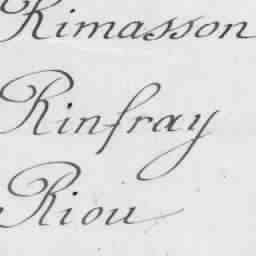 Rimasson
Rinfray
Riou